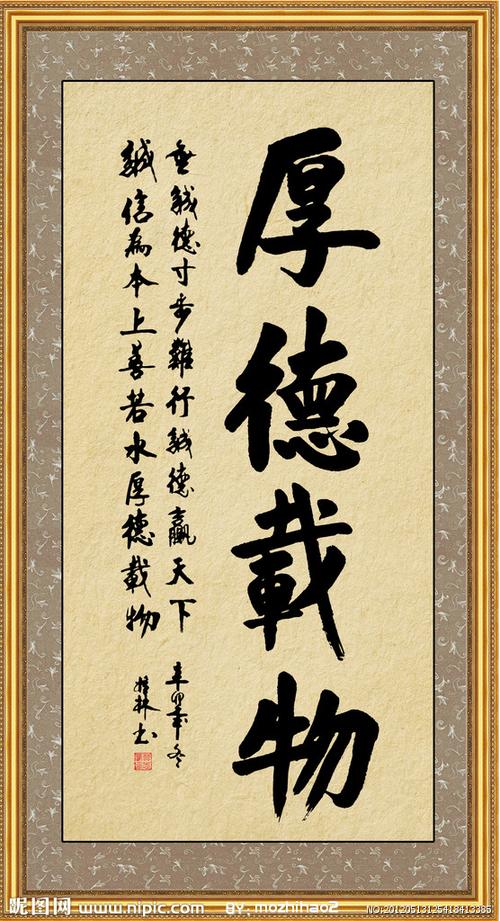 厚德載物
無誠德寸步難行誠德贏天下
辛卯年冬
誠信為本上善若水厚德載物
桂林书
昵图网 www.nipic.com BY: mozhihao2